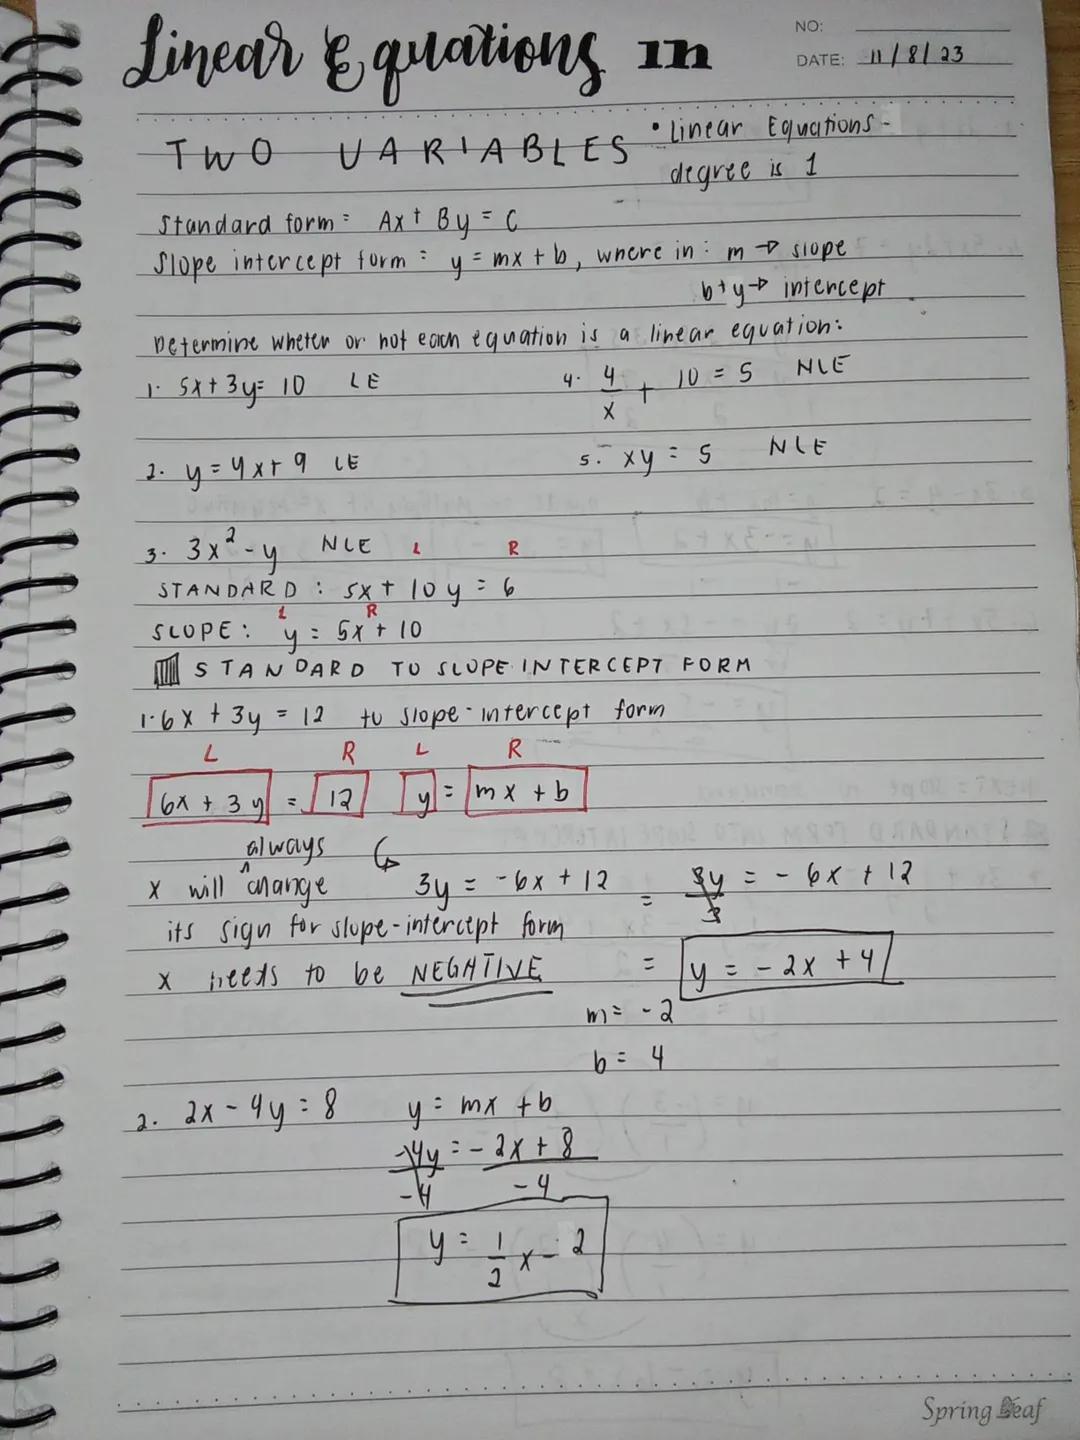 Linear Equations in
NO:
DATE: 11/8/23
TWO VARIABLES
• Linear Equations -
degree is 1
Standard form = Ax + By = C
Slope intercept form = y = mx + b, where in : m → slope
b + y → intercept
Determine wheter or not each equation is a linear equation:
1. 5x + 3y = 10 LE
4. 4/x + 10 = 5 NLE
2. y = 4x + 9 LE
5. xy = 5 NLE
3. 3x² - y NLE
L R
STANDARD : 5x + 10y = 6
L R
SLOPE : y = 5x + 10
STANDARD TO SLOPE INTERCEPT FORM
1. 6x + 3y = 12 to slope-intercept form
L R L R
6x + 3y = 12 y = mx + b
always
x will ^ change
its sign for slope-intercept form
x needs to be NEGATIVE
3y = -6x + 12
= 3y/3 = -6x + 12
= y = -2x + 4
m = -2
b = 4
2. 2x - 4y = 8 y = mx + b
-4y/-4 = -2x + 8/-4
y = 1/2 x - 2
Spring Leaf